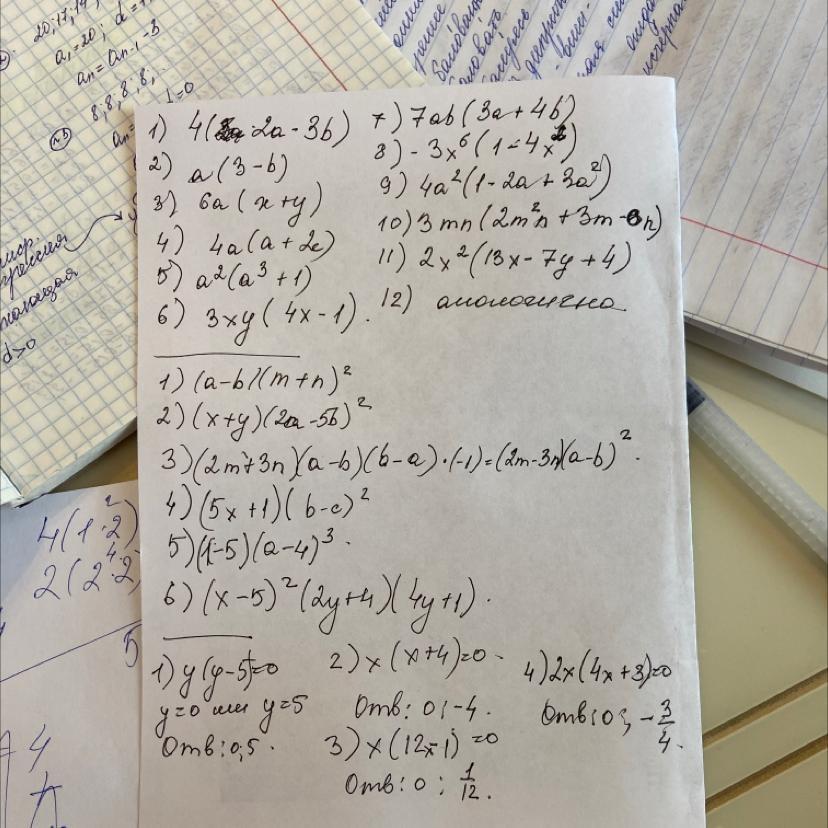 20; 17; 14
a₁ = 20; d =
aₙ = aₙ₋₁ - 3
8; 8; 8; 8;
d = 0
d > 0
1) 4(2a - 3b)
2) a(3 - b)
3) 6a(x + y)
4) 4a(a + 2c)
5) a²(a³ + 1)
6) 3xy(4x - 1).
7) 7ab(3a + 4b)
8) - 3x⁶(1 - 4x²)
9) 4a²(1 - 2a + 3a²)
10) 3mn(2m²n + 3m - 6n)
11) 2x²(13x - 7y + 4)
12) аналогично
1) (a - b)(m + n)²
2) (x + y)(2a - 5b)²
3) (2m + 3n)(a - b)(b - a)·(-1) = (2m - 3n)(a - b)².
4) (5x + 1)(b - c)²
5) (1 - 5)(a - 4)³.
6) (x - 5)²(2y + 4)(4y + 1).
1) y(y - 5) = 0
y = 0 или y = 5
Отв: 0; 5.
2) x(x + 4) = 0
Отв: 0; -4.
3) x(12x - 1) = 0
Отв: 0; 1/12.
4) 2x(4x + 3) = 0
Отв: 0; -3/4.
4(1·2)
2(2·2)
5
4